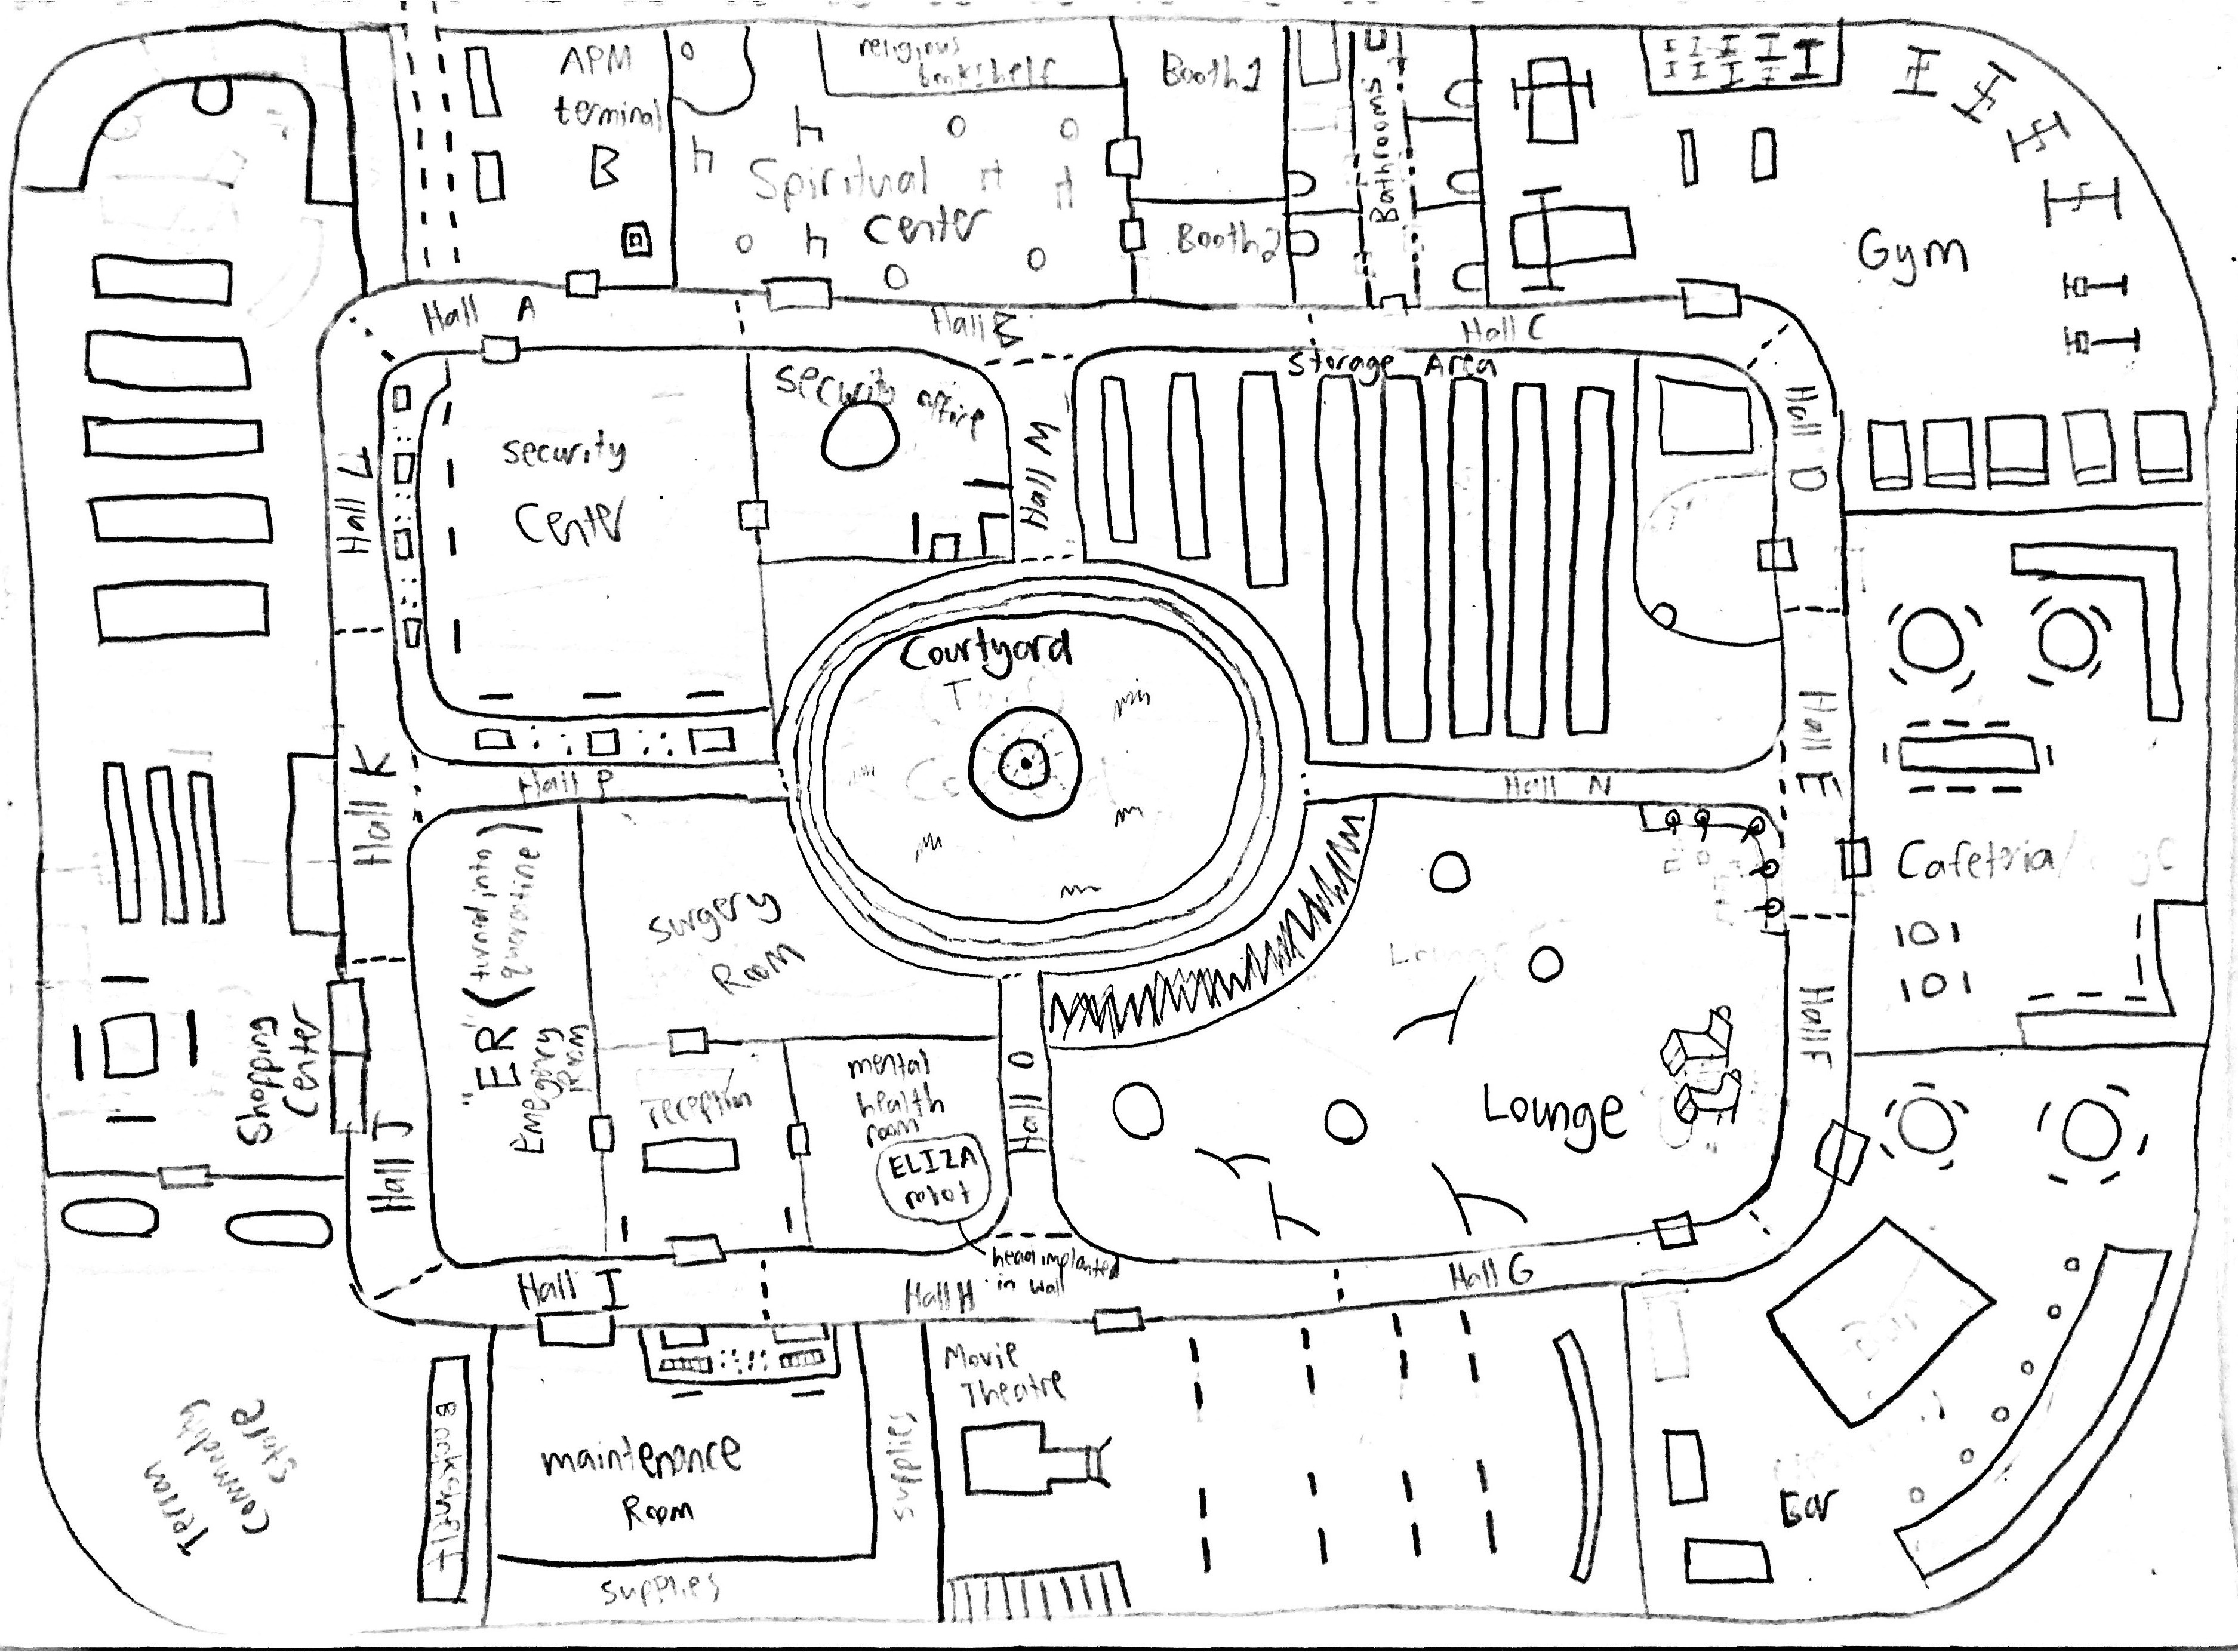 APM
terminal
B
religious
bookshelf
Spiritual
center
Booth 1
Booth 2
Bathrooms
Gym
Hall A
Hall B
Hall C
Storage Area
Hall D
Hall L
security
Center
security office
Hall M
Courtyard
Hall K
Hall P
Hall N
Hall E
Cafeteria
"ER" (turned into
quarantine)
Emergency
Room
surgery
Room
reception
mental
health
room
ELIZA
robot
head implanted
in wall
Hall O
Lounge
Hall F
Shopping
Center
Hall J
Hall I
Hall H
Hall G
Terran
Commodity
Stole
Bookshelf
maintenance
Room
supplies
supplies
Movie
Theatre
Bar